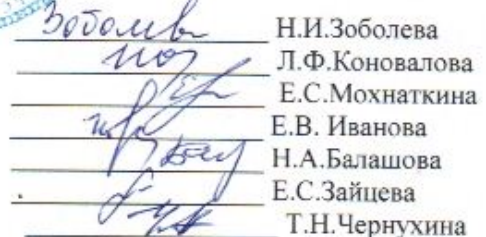 Н.И.Зоболева
Л.Ф.Коновалова
Е.С.Мохнаткина
Е.В. Иванова
Н.А.Балашова
Е.С.Зайцева
Т.Н.Чернухина